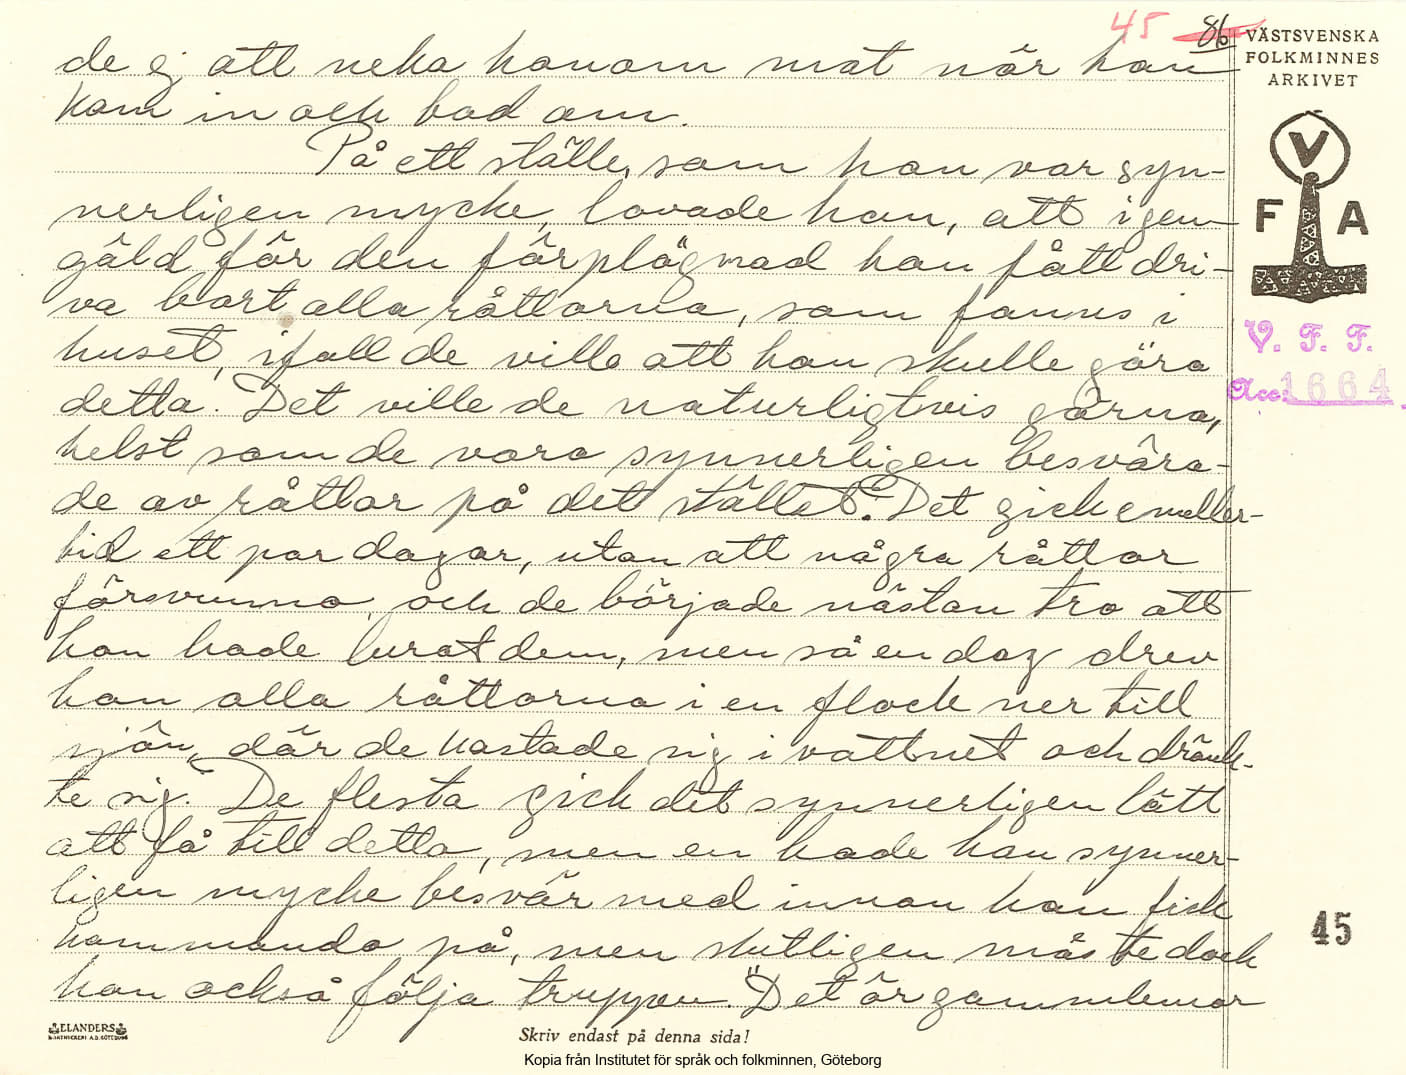 45 86
VÄSTSVENSKA
FOLKMINNES
ARKIVET
V
F A
V. F. F.
Acc: 1664.
de ej att neka honom mat när han
kom in och bad om.
På ett ställe, som han var syn-
nerligen mycke, lovade han, att i gen
gäld för den förplägnad han fått dri-
va bort alla råttorna, som fanns i
huset, ifall de ville att han skulle göra
detta. Det ville de naturligtvis gärna,
helst som de voro synnerligen besvära-
de av råttor på det stället. Det gick emeller-
tid ett par dagar, utan att några råttor
försvunno, och de började nästan tro att
han hade lurat dem, men så en dag drev
han alla råttorna i en flock ner till
sjön, där de kastade sig i vattnet och dränk-
te sig. De flesta gick det synnerligen lätt
att få till detta, men en hade han synner-
ligen mycke besvär med innan han fick
kommando på, men slutligen måste dock
han också följa truppen. "Det är gammelmor
45
ELANDERS
BOKTRYCKERI A.B. GÖTEBORG
Skriv endast på denna sida!
Kopia från Institutet för språk och folkminnen, Göteborg